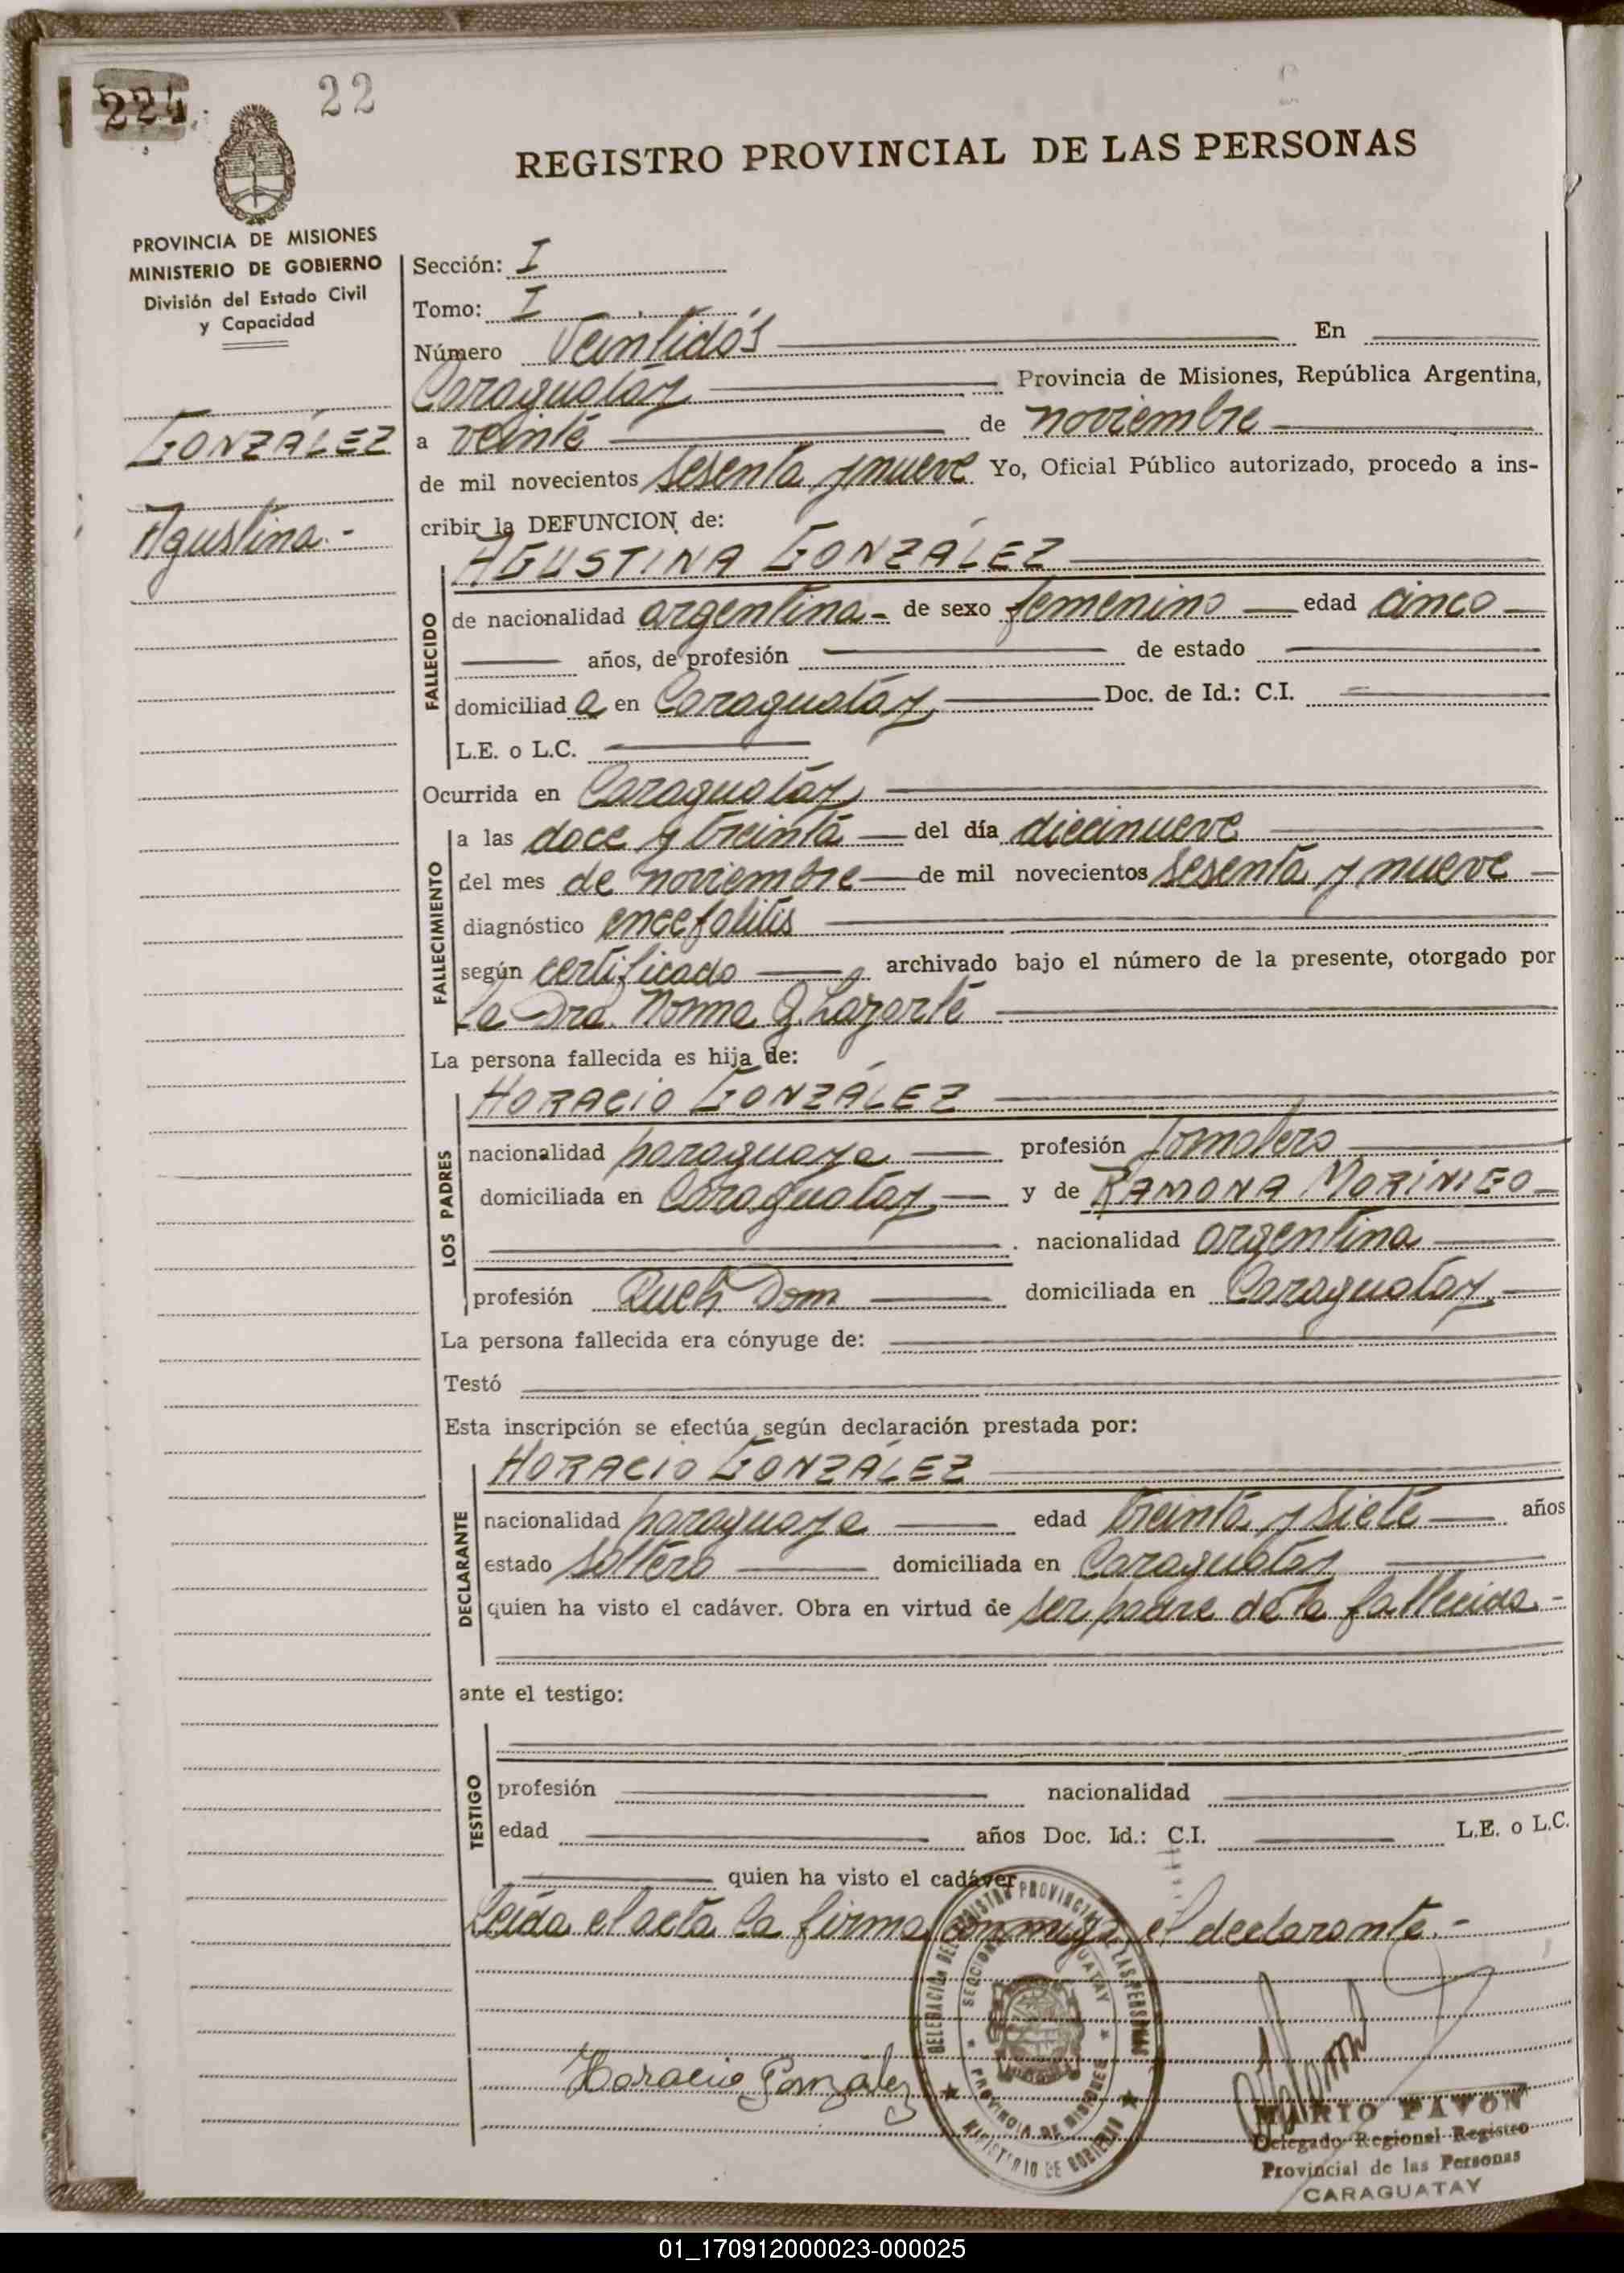 224
22
REGISTRO PROVINCIAL DE LAS PERSONAS
PROVINCIA DE MISIONES
MINISTERIO DE GOBIERNO
División del Estado Civil
y Capacidad
GONZÁLEZ
Agustina.-
Sección: I
Tomo: I
Número Veintidós En
Caraguatáy Provincia de Misiones, República Argentina,
a veinte de noviembre
de mil novecientos sesenta y nueve Yo, Oficial Público autorizado, procedo a ins-
cribir la DEFUNCION de:
AGUSTINA GONZÁLEZ
FALLECIDO
de nacionalidad argentina- de sexo femenino edad cinco
años, de profesión de estado
domiciliad a en Caraguatáy Doc. de Id.: C.I.
L.E. o L.C.
Ocurrida en Caraguatáy
FALLECIMIENTO
a las doce y treinta del día diecinueve
del mes de noviembre de mil novecientos sesenta y nueve
diagnóstico encefalitis
según certificado archivado bajo el número de la presente, otorgado por
la Dra. Norma Q. Lazarte
La persona fallecida es hija de:
LOS PADRES
HORACIO GONZÁLEZ
nacionalidad paraguaya profesión Jornalero
domiciliada en Caraguatay y de RAMONA MORINIGO
nacionalidad argentina
profesión Queh Dom domiciliada en Caraguatay
La persona fallecida era cónyuge de:
Testó
Esta inscripción se efectúa según declaración prestada por:
DECLARANTE
HORACIO GONZÁLEZ
nacionalidad paraguaya edad treinta y siete años
estado soltero domiciliada en Caraguatay
quien ha visto el cadáver. Obra en virtud de ser padre de la fallecida.-
ante el testigo:
TESTIGO
profesión nacionalidad
edad años Doc. Id.: C.I. L.E. o L.C.
quien ha visto el cadáver
Leída el acta la firma conmigo el declarante.-
DELEGACIÓN DEL REGISTRO PROVINCIAL DE LAS PERSONAS
MINISTERIO DE GOBIERNO
PROVINCIA DE MISIONES
Horacio González
MARIO PAVON
Delegado Regional Registro
Provincial de las Personas
CARAGUATAY
01_170912000023-000025